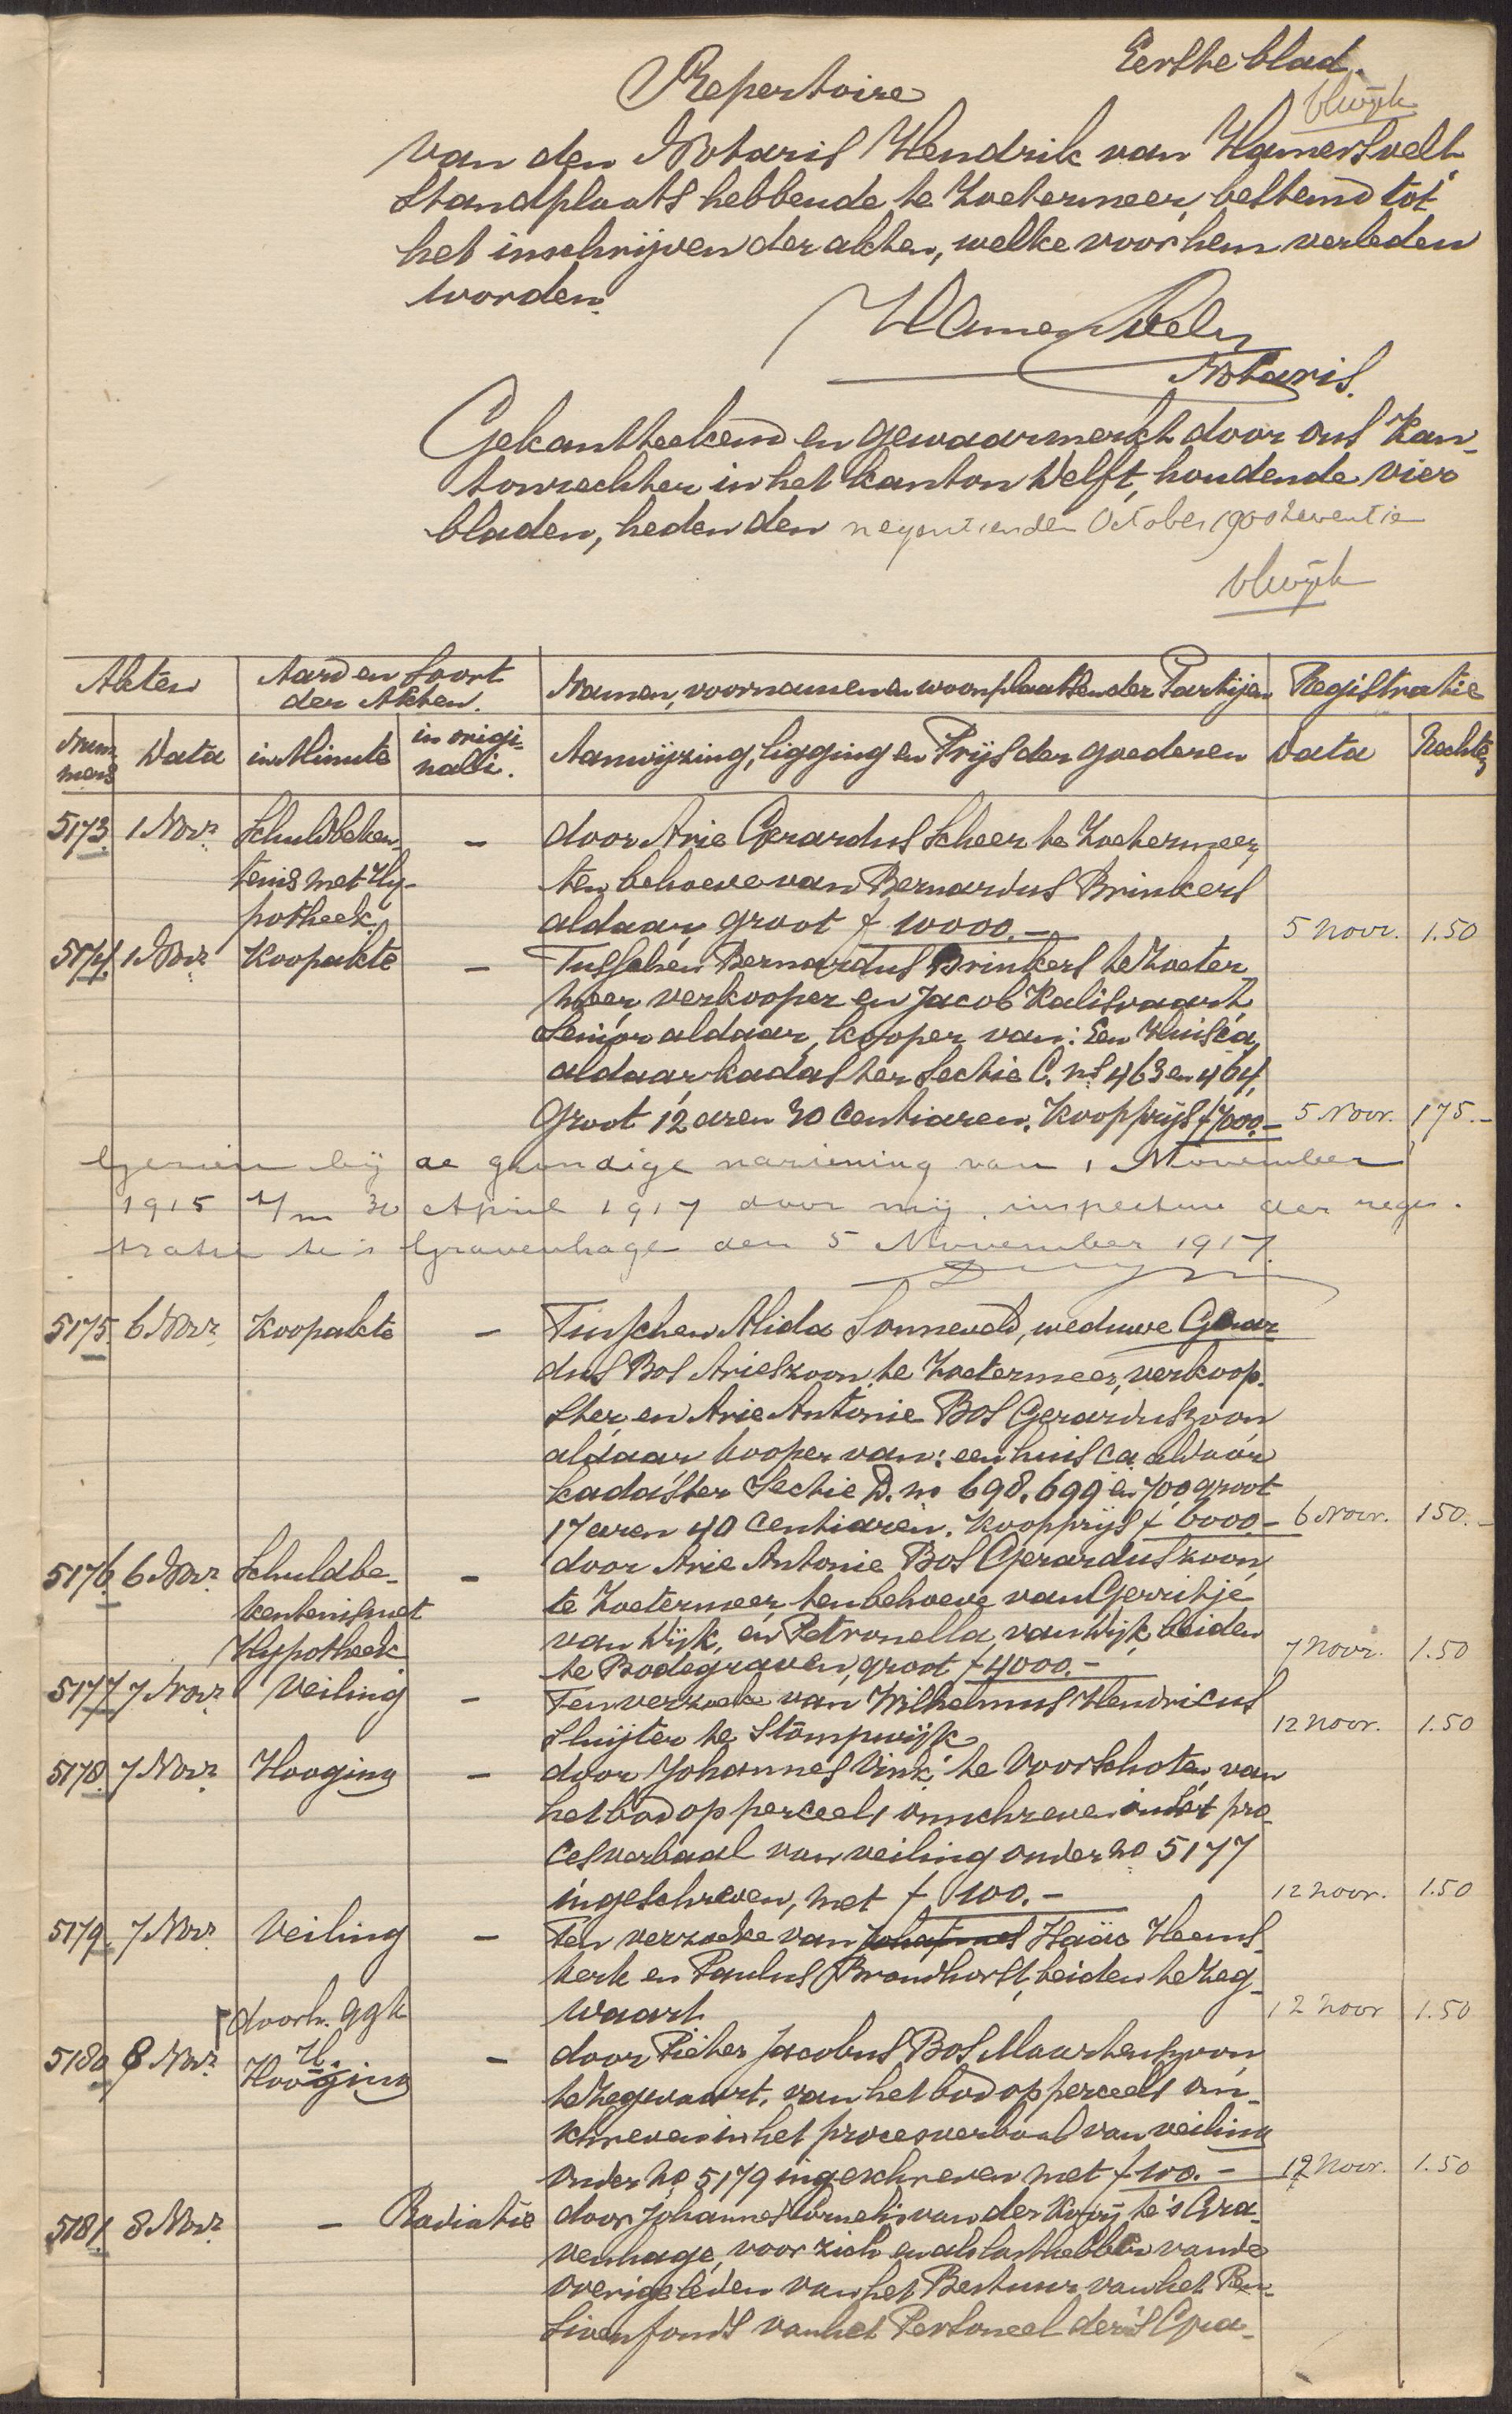 Eerste blad.
Repertoire
van den Notaris Hendrik van Hamersvelt
standplaats hebbende te Zoetermeer, bestemd tot
het inschrijven der akten, welke voor hem verleden
worden.
Notaris.
Gekanttekend en gewaarmerkt door ons Kan-
tonrechter in het kanton Delft, houdende vier
bladen, heden den negentienden October 1900 zeventien
Akten Aard en soort der Akten. Namen, voornamen en woonplaatsen der Partijen Registratie
Nummers Data in Minute in originali. Aanwijzing, ligging en Prijs der goederen Data Rechten
5173. 1 Novr. Schuldbeken- — door Arie Gerardus Scheer te Zoetermeer,
tenis met Hy- ten behoeve van Bernardus Brinkers
potheek. aldaar, groot f 10000.- 5 Novr. 1.50
5174. 1 Novr. Koopakte — Tusschen Bernardus Brinkers te Zoeter
meer, verkooper en Jacob Kalisvaart
Senior aldaar, kooper van: Een Huis ca,
aldaar kadaster Sectie C. ns 463 en 464,
groot 12 aren 30 centiaren. Koopprijs f 7000.- 5 Novr. 175.-
Gezien bij de grondige nariening van 1 November
1915 t/m 30 April 1917 door mij, inspecteur der regis-
tratie te 's Gravenhage den 5 November 1917.
5175. 6 Novr. Koopakte — Tusschen Alida Sonneveld, weduwe Gerar
dus Bos Arieszoon te Zoetermeer, verkoop-
ster, en Arie Antonie Bos Gerarduszoon
aldaar kooper van: een huis ca aldaar
kadaster Sectie D. no 698, 699 en 700, groot
17 aren 40 centiaren. Koopprijs f 6000.- 6 Novr. 150.-
5176. 6 Novr. Schuldbe- — door Arie Antonie Bos Gerarduszoon,
kentenis met te Zoetermeer, ten behoeve van Gerritje
Hypotheek van Wijk, en Petronella, van Wijk, beiden
te Bodegraven, groot f 4000.- 7 Novr. 1.50
5177 7 Novr. Veiling — Ten verzoeke van Wilhelmus Hendricus
Sluijter te Stompwijk 12 Novr. 1.50
5178. 7 Novr. Hooging — door Johannes Vink te Voorschoten, van
het bod op perceel 1 omschreven in het pro-
cesverbaal van veiling onder no 5177
ingeschreven, met f 100.- 12 Novr. 1.50
5179. 7 Novr. Veiling — Ten verzoeke van Johannes Isaäc Heems-
kerk en Paulus Brandhorst, beiden te Zeg-
waart 12 Novr 1.50
doorh. ggk
H.
5180 8 Novr. Hooging — door Pieter Jacobus Bos Maartenszoon,
te Zegwaart, van het bod op perceel 1 om-
schreven in het procesverbaal van veiling
onder no 5179 ingeschreven met f 100.- 12 Novr. 1.50
5181. 8 Novr. — Radiatie door Johannes Cornelis van der Kooij te 's Gra-
venhage, voor zich en als lasthebber van de
overige leden van het Bestuur van het Pen-
sioenfonds van het Personeel der 's Gra-